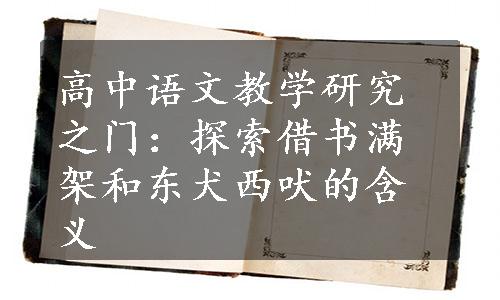 高中语文教学研究
之门：探索借书满
架和东犬西吠的含
义